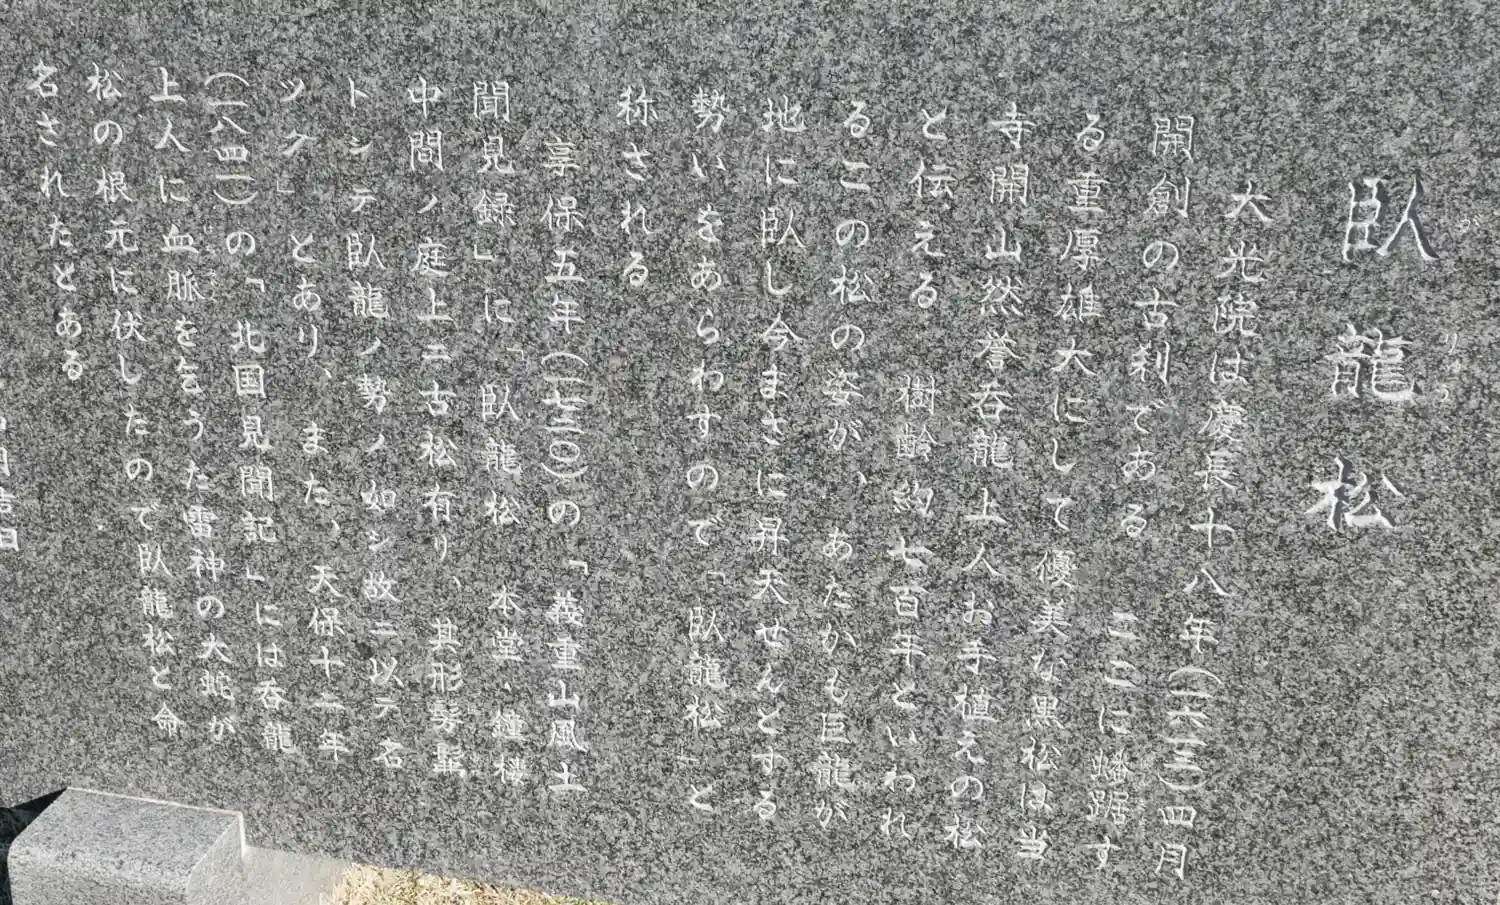 臥龍松
がりゅう
大光院は慶長十八年(一六一三)四月
開創の古刹である ここに蟠踞す
る重厚雄大にして優美な黒松は当
寺開山然誉呑龍上人お手植えの松
と伝える 樹齢約七百年といわれ
るこの松の姿が、あたかも巨龍が
地に臥し今まさに昇天せんとする
勢いをあらわすので「臥龍松」と
称される
享保五年(一七二〇)の「義重山風土
聞見録」に「臥龍松 本堂、鐘楼
中間ノ庭上ニ古松有リ、其形髣髴
トシテ臥龍ノ勢ノ如シ故ニ以テ名
ツク」とあり、また、天保十二年
(一八四一)の「北国見聞記」には呑龍
上人に血脈を乞うた雷神の大蛇が
松の根元に伏したので臥龍松と命
名されたとある
吉日